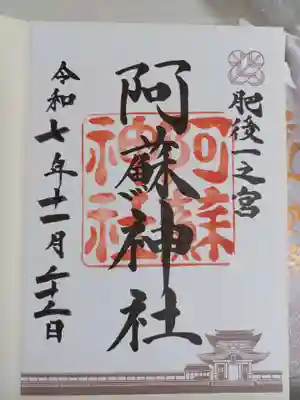 肥後一之宮
阿蘇神社
阿蘇神社
令和七年十一月二十二日